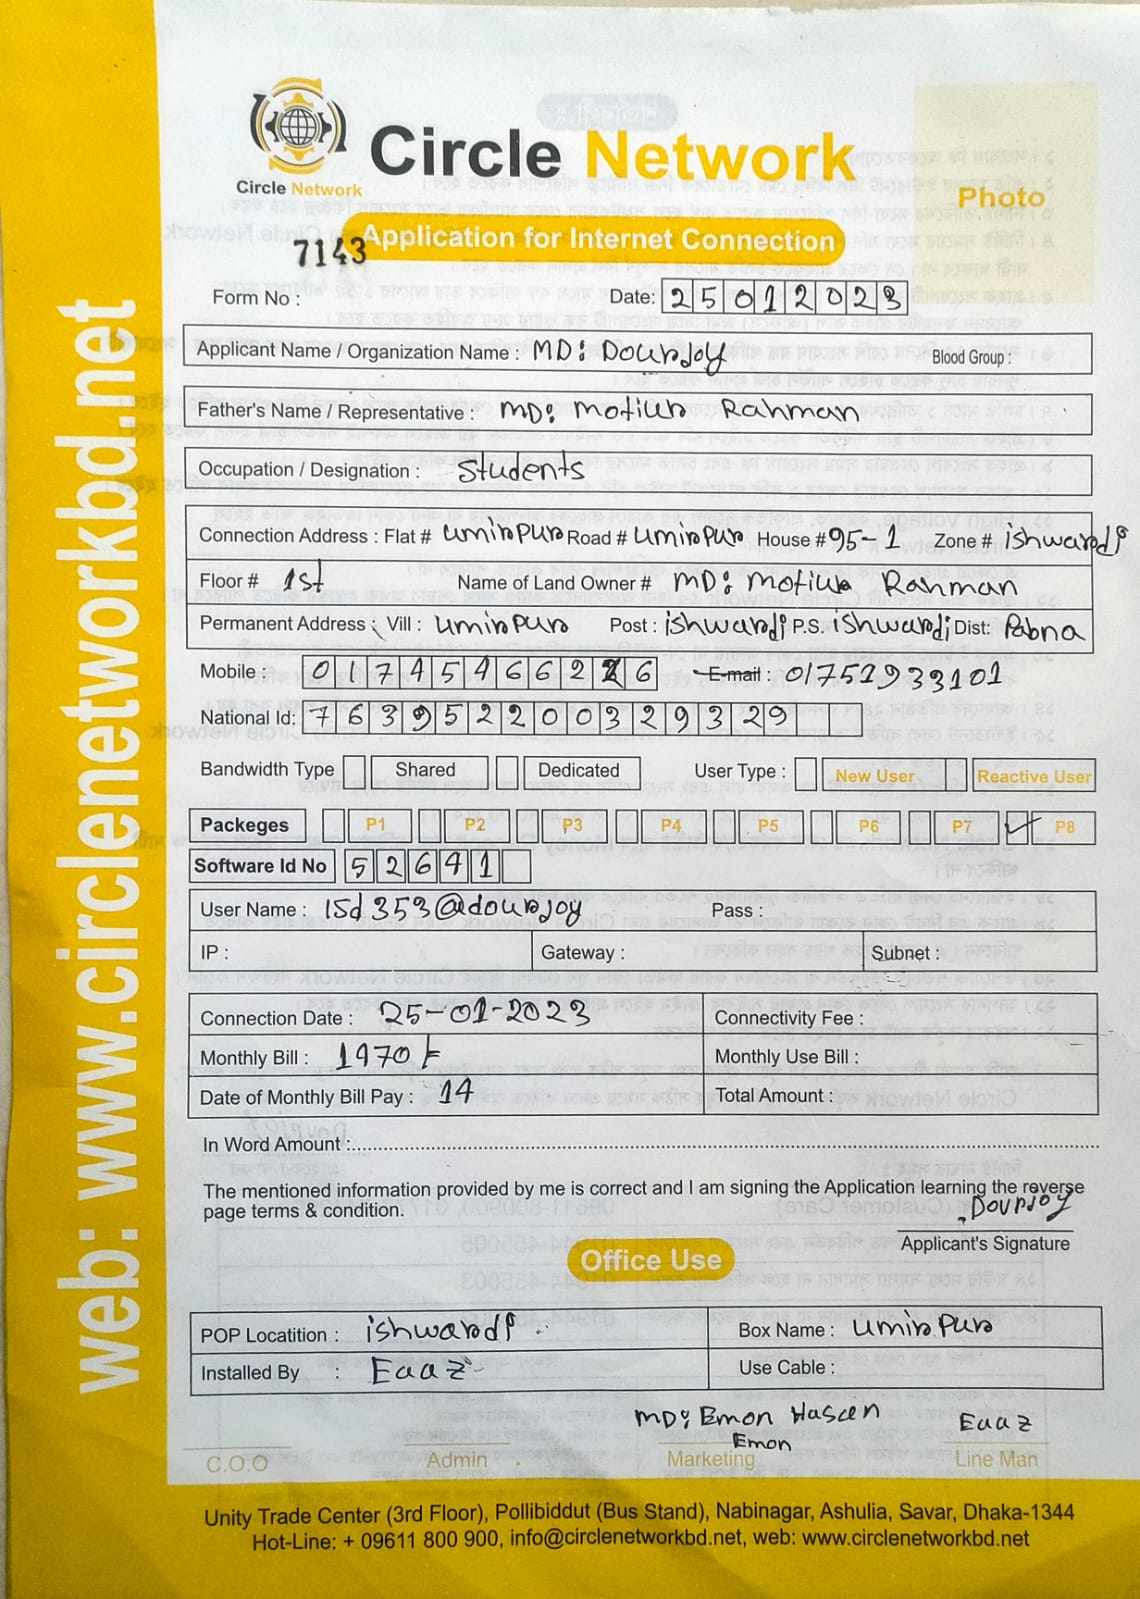 Circle Network
Circle Network
Photo
Application for Internet Connection
7143
Form No :
Date: 25012023
Applicant Name / Organization Name : MD: Dounjoy Blood Group :
Father's Name / Representative : MD: Motiun Rahman
Occupation / Designation : Students
Connection Address : Flat # Uminpun Road # Uminpun House # 95-1 Zone # ishwardi
Floor # 1st Name of Land Owner # MD: Motiun Rahman
Permanent Address : Vill : Uminpun Post : ishwardi P.S. ishwardi Dist: Pabna
Mobile : 017454662 6 E-mail : 01751933101
National Id: 763952200329329
Bandwidth Type Shared Dedicated User Type : New User Reactive User
Packeges P1 P2 P3 P4 P5 P6 P7 P8
Software Id No 52641
User Name : isd353@dounjoy Pass :
IP : Gateway : Subnet :
Connection Date : 25-01-2023 Connectivity Fee :
Monthly Bill : 1970 Monthly Use Bill :
Date of Monthly Bill Pay : 14 Total Amount :
In Word Amount :
The mentioned information provided by me is correct and I am signing the Application learning the reverse
page terms & condition.
Dounjoy
Applicant's Signature
Office Use
POP Locatition : ishwardi Box Name : Uminpun
Installed By : Eaaz Use Cable :
MD: Emon Hasan Eaaz
Emon
C.O.O Admin Marketing Line Man
Unity Trade Center (3rd Floor), Pollibiddut (Bus Stand), Nabinagar, Ashulia, Savar, Dhaka-1344
Hot-Line: + 09611 800 900, info@circlenetworkbd.net, web: www.circlenetworkbd.net
web: www.circlenetworkbd.net